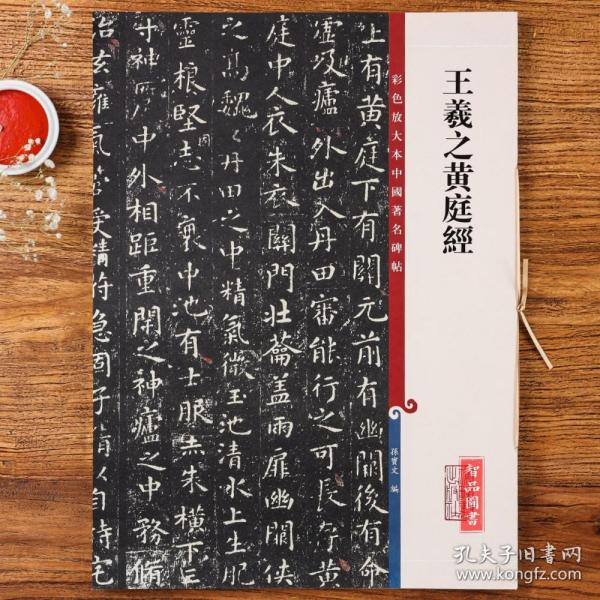 王羲之黄庭經
彩色放大本中國著名碑帖
孫寶文 編
上有黄庭下有關元前有幽關後有命
嘘吸廬外出入丹田審能行之可長存黄
庭中人衣朱衣關門壯蘥盖兩扉幽關俠
之高魏〻丹田之中精氣微玉池清水上生肥
靈根堅志不衰中池有士服赤朱横下三
寸神所中外相距重閉之神廬之中務脩
治玄雍氣管受精符急固子精以自持宅
智品圖書
孔夫子旧书网
www.kongfz.com